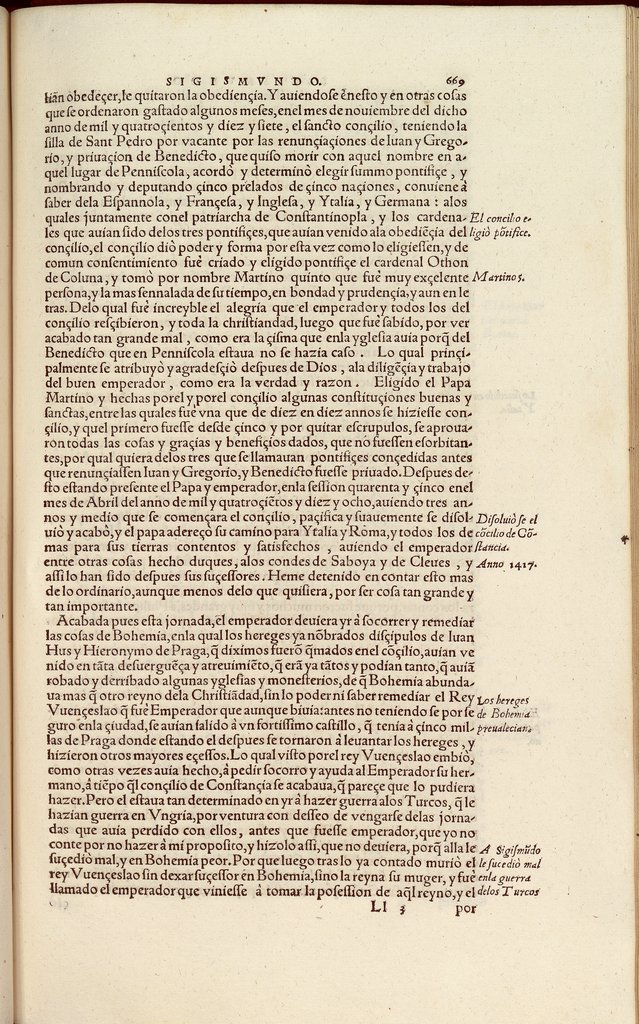 SIGISMVNDO. 669
hān obedeçer, le quitaron la obediençia. Y auiendose ēnesto y en otras cosas
que se ordenaron gastado algunos meses, enel mes de nouiembre del dicho
anno de mil y quatroçientos y diez y siete, el sancto conçilio, teniendo la
silla de Sant Pedro por vacante por las renunçiaçiones de Iuan y Grego-
rio, y priuaçion de Benedicto, que quiso morir con aquel nombre en a-
quel lugar de Penniscola, acordò y determinò elegir summo pontifiçe, y
nombrando y deputando çinco prelados de çinco naçiones, conuiene à
saber dela Espannola, y Françesa, y Inglesa, y Ytalia, y Germana : a los
quales juntamente conel patriarcha de Constantinopla, y los cardena-
les que auian sido delos tres pontifiçes, que auian venido ala obediēçia del
conçilio, el conçilio diò poder y forma por esta vez como lo eligiessen, y de
comun consentimiento fuè criado y eligido pontifiçe el cardenal Othon
de Coluna, y tomò por nombre Martino quinto que fuè muy exçelente
persona, y la mas sennalada de su tiempo, en bondad y prudençia, y aun en le
tras. Delo qual fuè increyble el alegria que el emperador y todos los del
conçilio resçibieron, y toda la christiandad, luego que fuè sabido, por ver
acabado tan grande mal, como era la çisma que enla yglesia auia porq̄ del
Benedicto que en Penniscola estaua no se hazia caso . Lo qual prinçi-
palmente se atribuyò y agradesçiò despues de Dios, ala diligēçia y trabajo
del buen emperador, como era la verdad y razon. Eligido el Papa
Martino y hechas por el y por el conçilio algunas constituçiones buenas y
sanctas, entre las quales fuè vna que de diez en diez annos se hiziesse con-
çilio, y quel primero fuesse desde çinco y por quitar escrupulos, se aproua-
ron todas las cosas y graçias y benefiçios dados, que nò fuessen esorbitan-
tes, por qual quiera delos tres que se llamauan pontifiçes conçedidas antes
que renunçiassen Iuan y Gregorio, y Benedicto fuesse priuado. Despues de-
sto estando presente el Papa y emperador, enla session quarenta y çinco enel
mes de Abril del anno de mil y quatroçiētos y diez y ocho, auiendo tres an-
nos y medio que se començara el conçilio, paçifica y suauemente se disol-
uiò y acabò, y el papa adereçò su camino para Ytalia y Roma, y todos los de
mas para sus tierras contentos y satisfechos , auiendo el emperador
entre otras cosas hecho duques, a los condes de Saboya y de Cleues , y
assi lo han sido despues sus suçessores. Heme detenido en contar esto mas
de lo ordinario, aunque menos delo que quisiera, por ser cosa tan grande y
tan importante.
Acabada pues esta jornada, el emperador deuiera yr à socorrer y remediar
las cosas de Bohemia, enla qual los hereges ya nōbrados disçipulos de Iuan
Hus y Hieronymo de Praga, q̄ diximos fuerō q̄mados enel cōçilio, auian ve
nido en tāta desuerguēça y atreuimiēto, q̄ erā ya tātos y podian tanto, q̄ auiā
robado y derribado algunas yglesias y monesterios, de q̄ Bohemia abunda-
ua mas q̄ otro reyno dela Christiādad, sin lo poder ni saber remediar el Rey
Vuençeslao q̄ fuè Emperador que aunque biuia: antes no teniendo se por se
guro enla çiudad, se auian salido à vn fortissimo castillo, q̄ tenia à çinco mil-
las de Praga donde estando el despues se tornaron à leuantar los hereges , y
hizieron otros mayores eçessos. Lo qual visto por el rey Vuençeslao embiò,
como otras vezes auia hecho, à pedir socorro y ayuda al Emperador su her-
mano, à tiēpo q̄l conçilio de Constançia se acabaua, q̄ pareçe que lo pudiera
hazer. Pero el estaua tan determinado en yr à hazer guerra alos Turcos, q̄ le
hazian guerra en Vngria, por ventura con desseo de vengarse delas jorna-
das que auia perdido con ellos, antes que fuesse emperador, que yo no
conte por no hazer à mi proposito, y hizolo assi, que no deuiera, porq̄ alla le
suçediò mal, y en Bohemia peor. Por que luego tras lo ya contado muriò el
rey Vuençeslao sin dexar suçessor en Bohemia, sino la reyna su muger, y fuè
llamado el emperador que viniesse à tomar la possession de aq̄l reyno, y el
Ll 3 por
El concilio e-
ligiò pōtifice.
Martino 5.
Disoluiò se el
cōcilio de Cō-
stancia.
Anno 1417.
Los hereges
de Bohemia
preualecian.
A Sigismūdo
le sucediò mal
enla guerra
delos Turcos